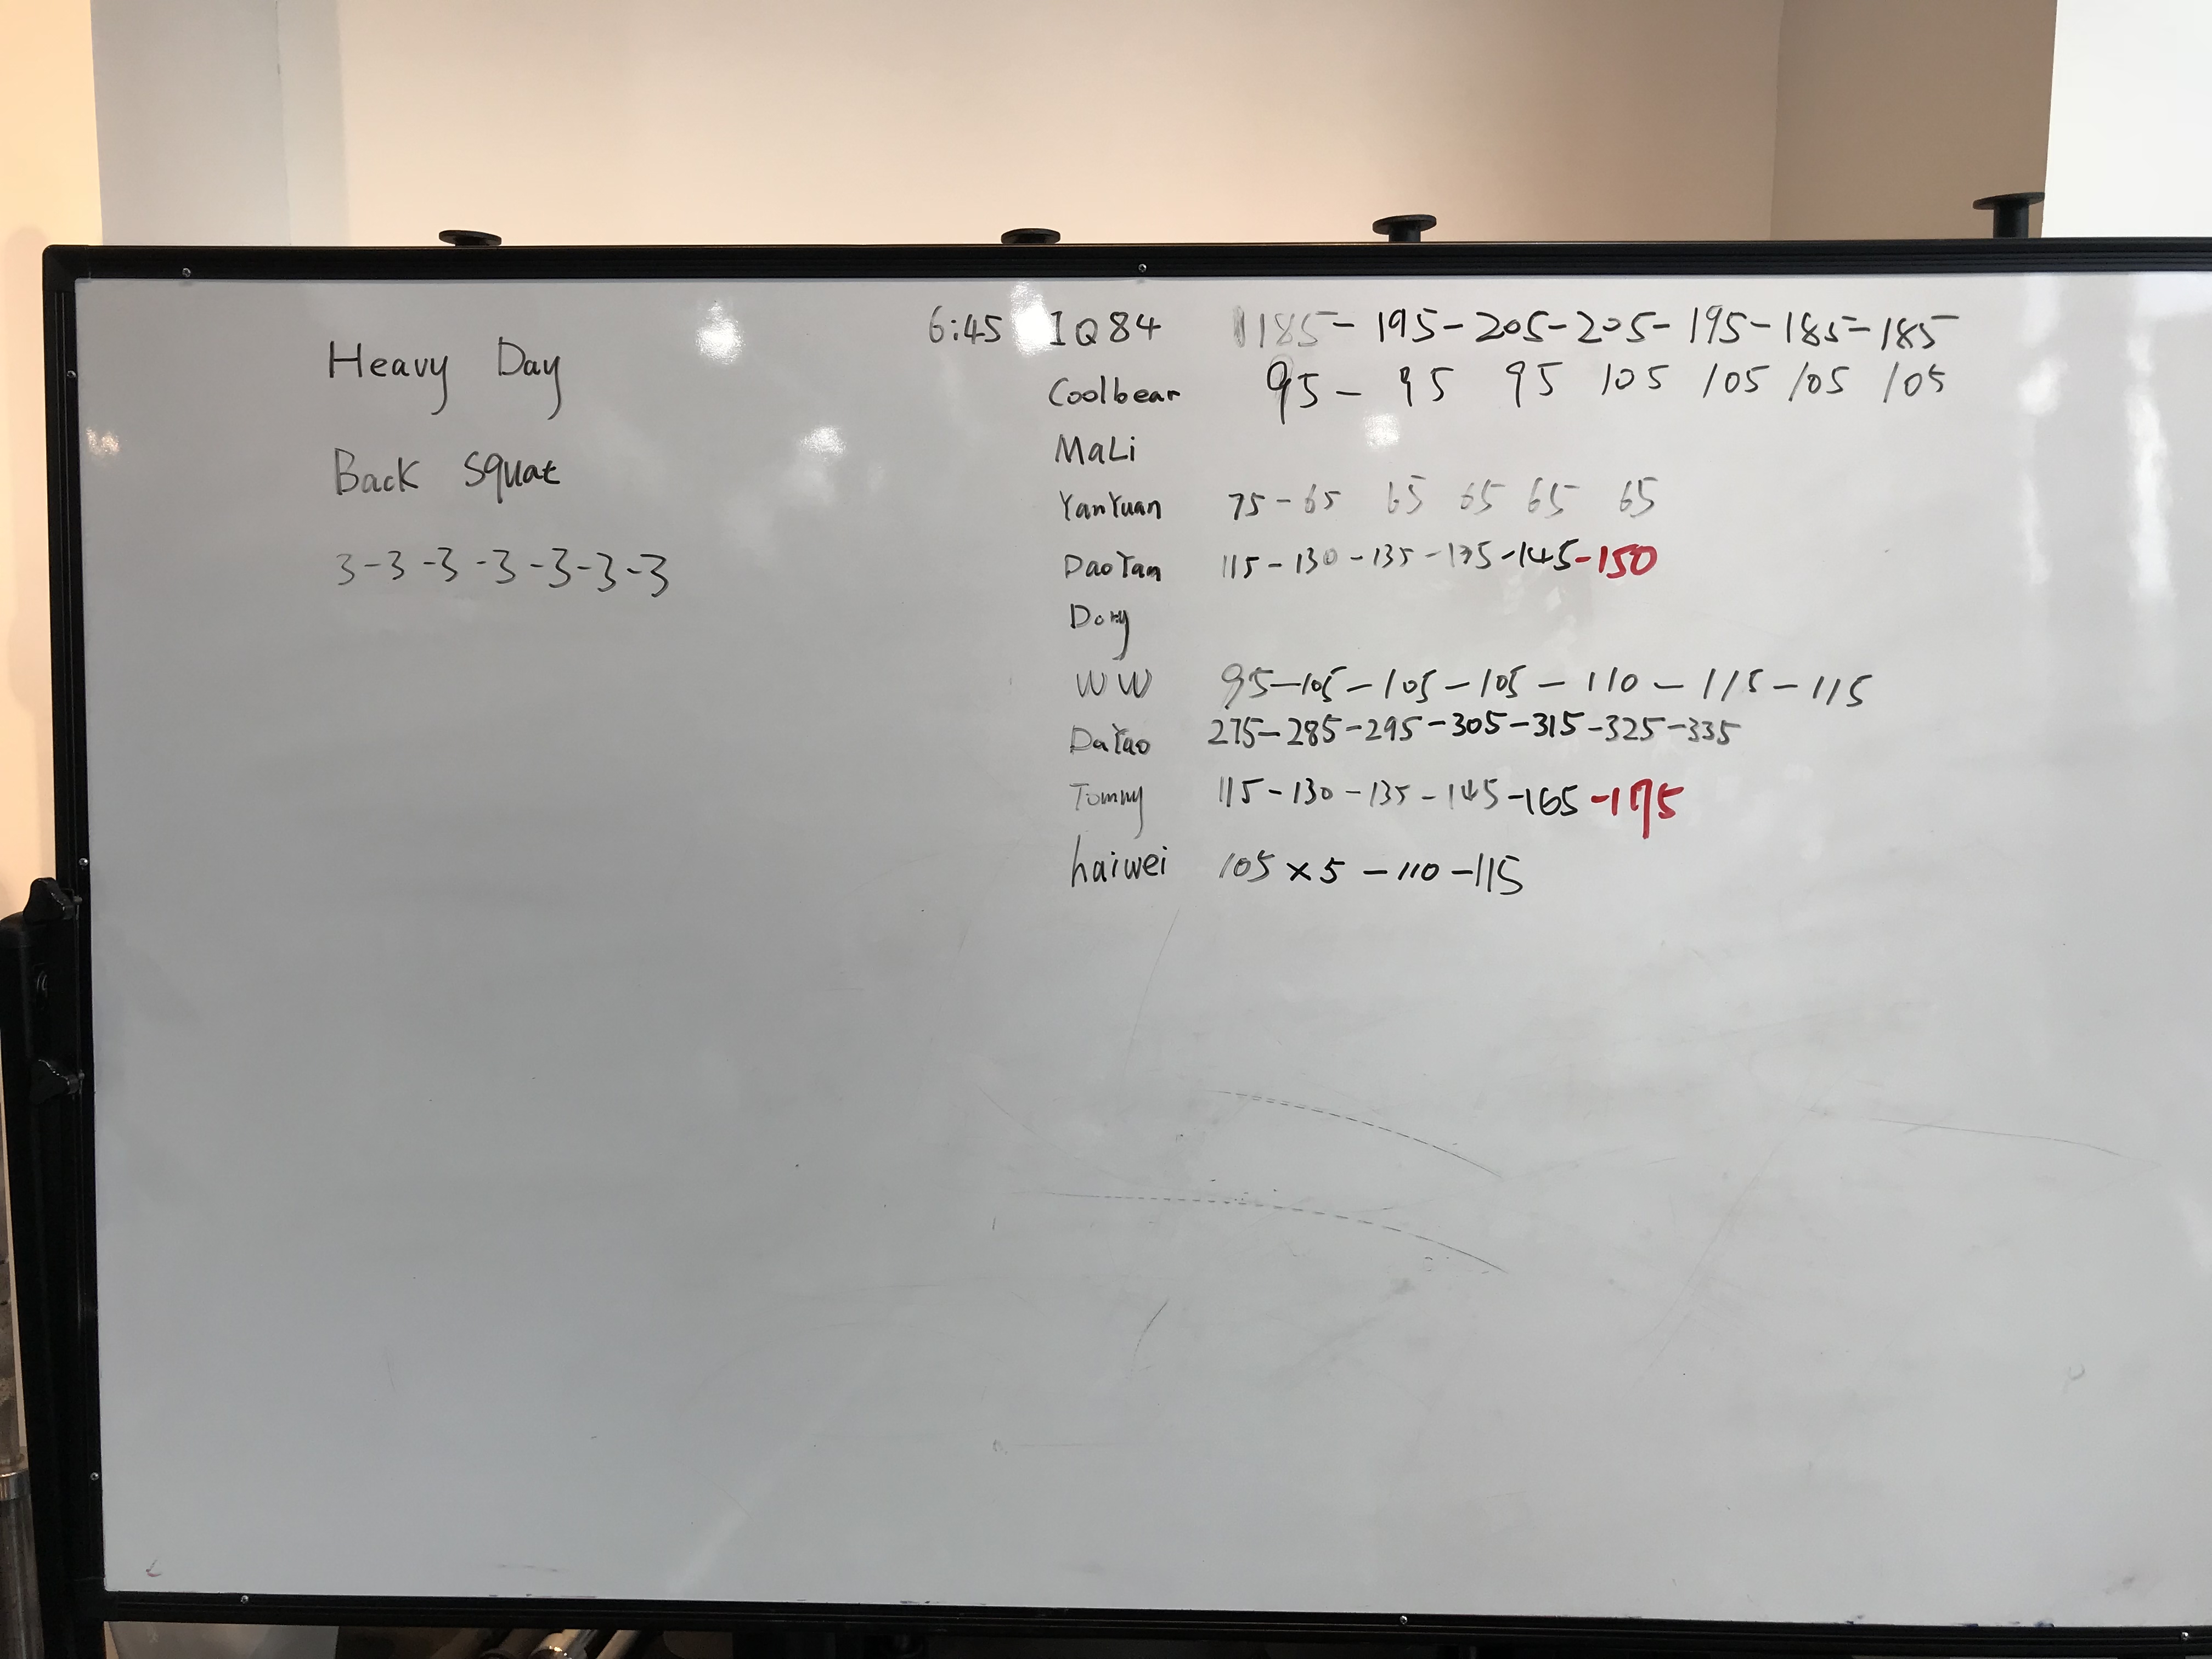 Heavy Day
Back Squat
3-3-3-3-3-3-3
6:45 IQ84 185-195-205-205-195-185-185
Coolbear 95- 95 95 105 105 105 105
MaLi
YanYuan 75-65 65 65 65 65
DaoYan 115-130-135-135-145-150
Dong
WW 95-105-105-105-110-115-115
DaYao 275-285-295-305-315-325-335
Tommy 115-130-135-145-165-175
haiwei 105×5-110-115